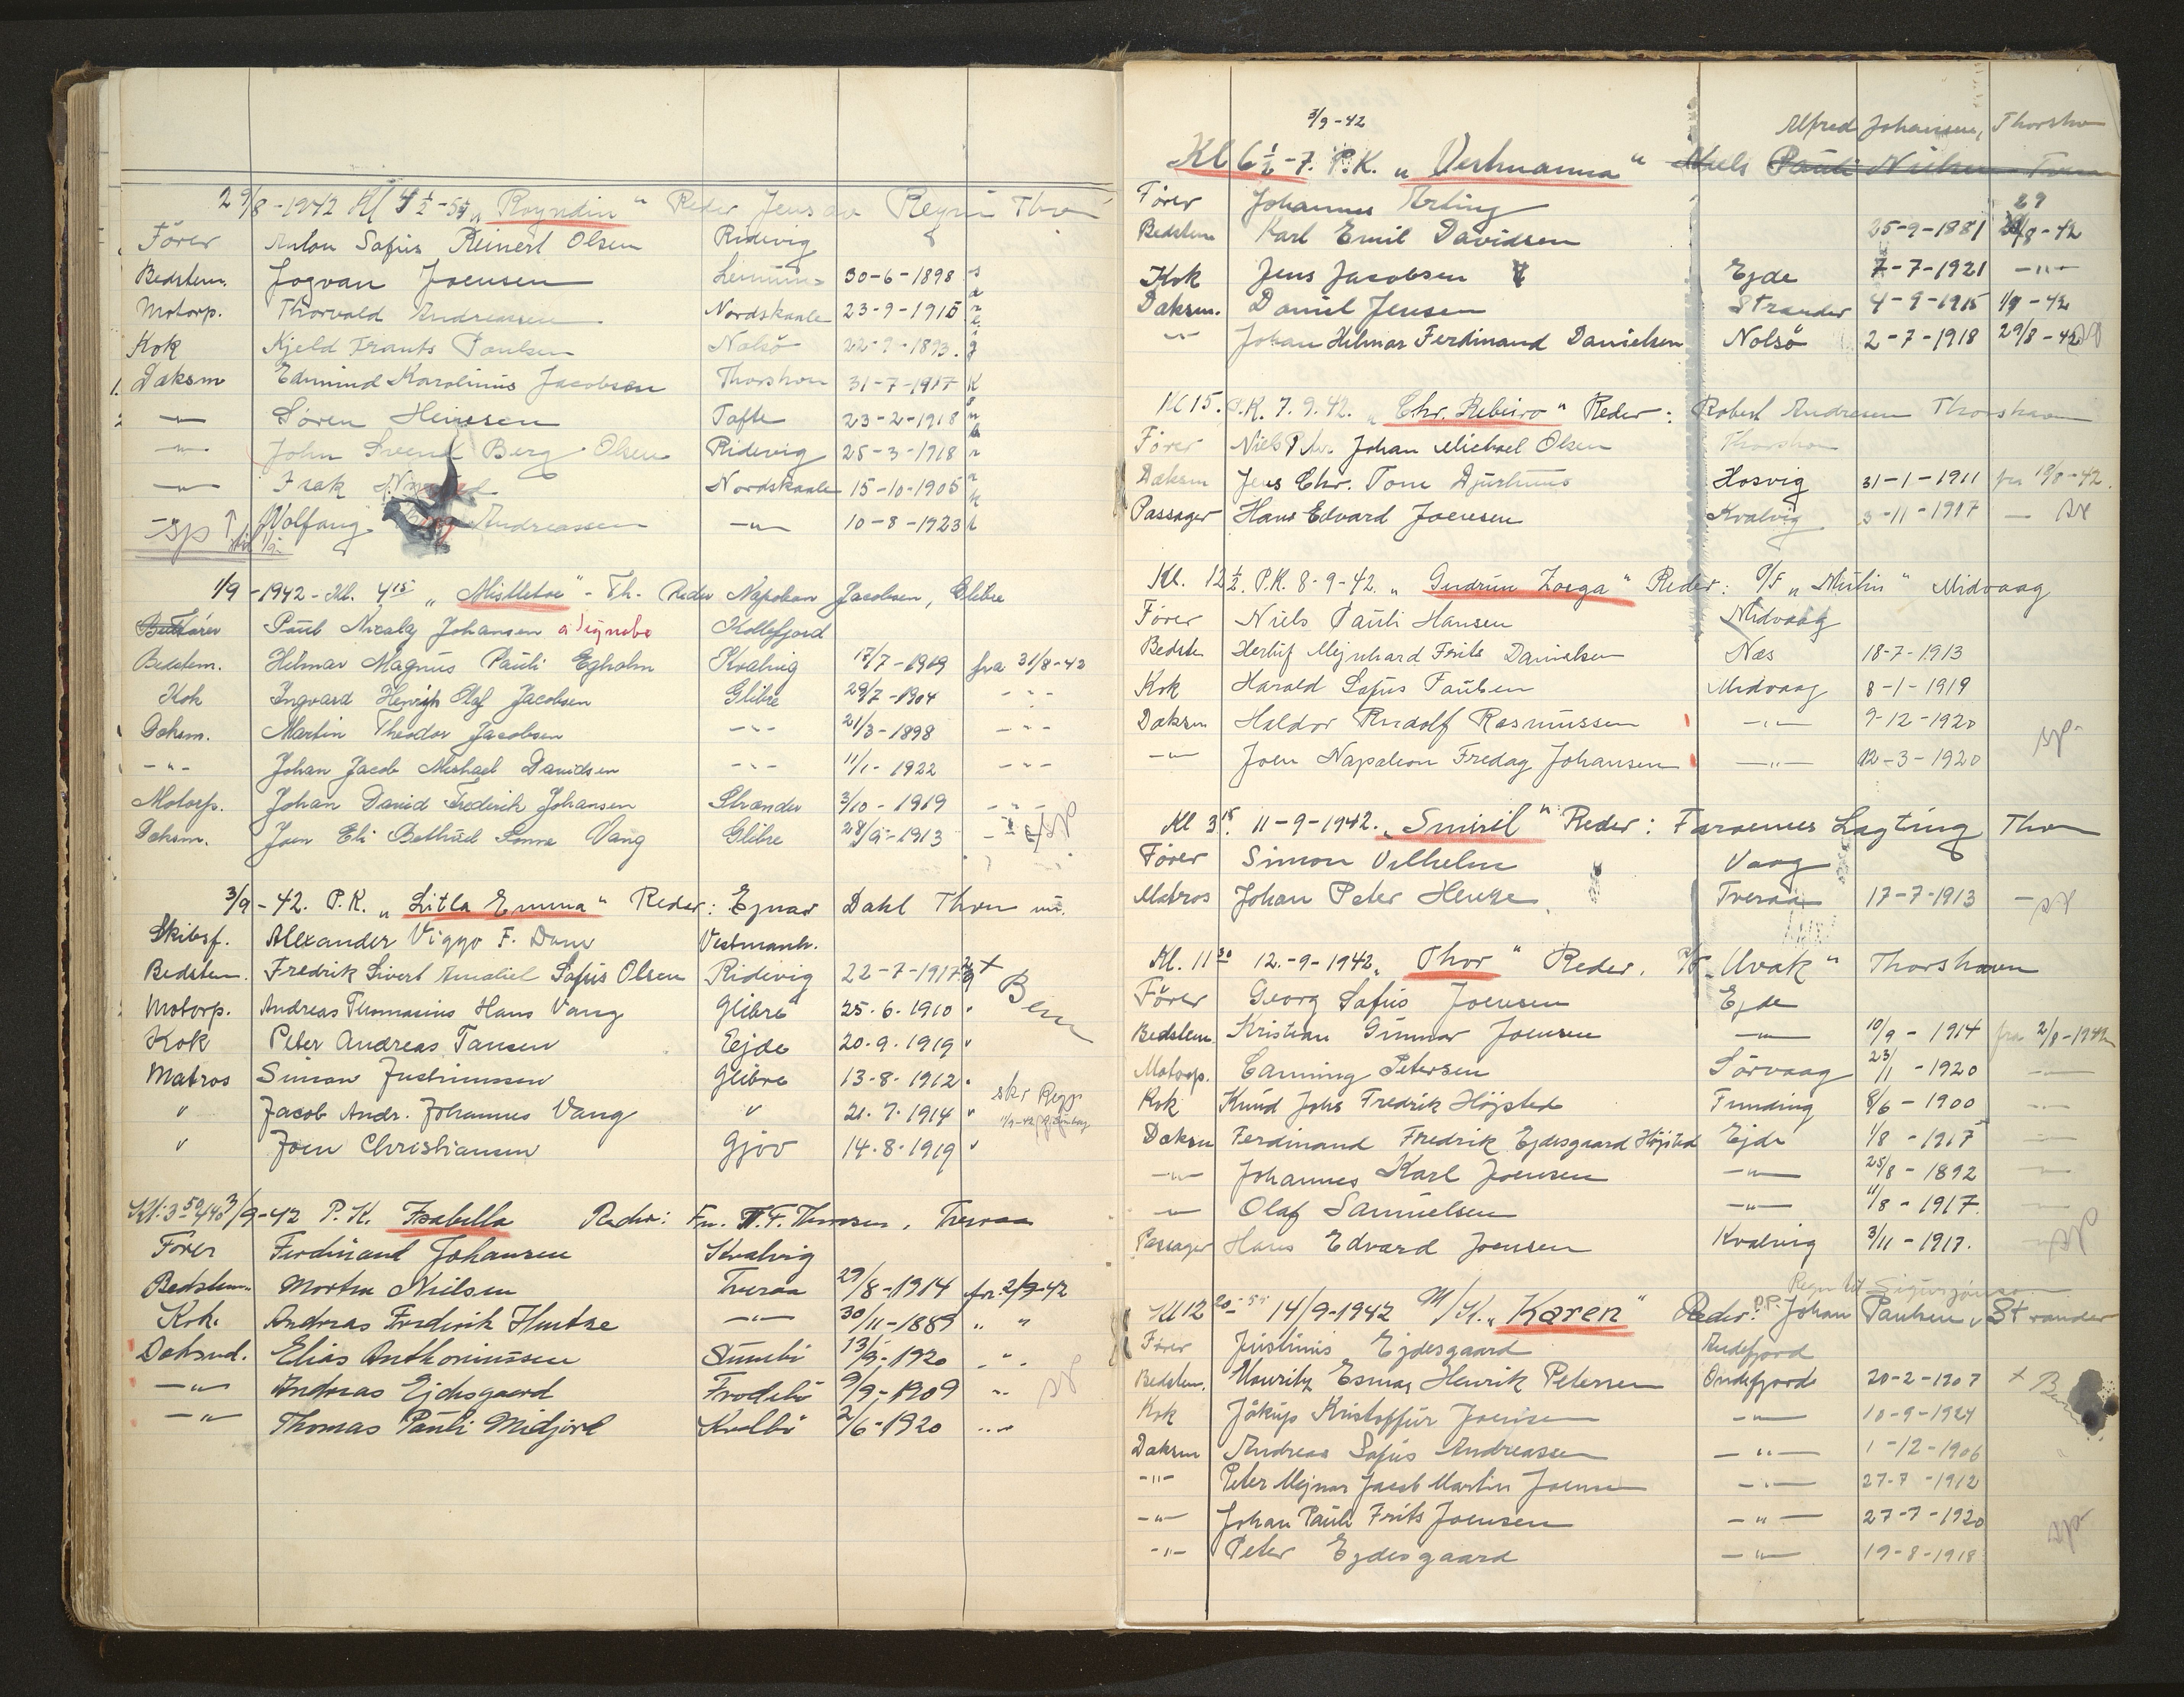 29/8-1942 Kl 4½-5¼ „Royndin“ Reder Jens av Reyni Thvn
Förer Anton Sofus Reinert Olsen Ridevig
Bedstem. Jogvan Joensen 30-6-1898
Motorp. Thorvald Andreassen Nordskaale 23-9-1915
Kok Kjeld Frants Poulsen Nolsö 22-9-1893.
Daksm Edmund Karolinus Jacobsen Thorshvn 31-7-1917
-"- Sören Heinesen Tofte 23-2-1918
-"- John Svend Berg Olsen Ridevig 25-3-1918
-"- Isak Nordskaale 15-10-1905
-"- Wolfang Andreassen -"- 10-8-1923
sp
1/9-1942 - Kl. 4 15 „Mistletoe“ - Th. Reder Napoleon Jacobsen, Glibre
Förer Paul Nicolaj Johansen Kollefjord
Bedstem. Hilmar Magnus Pauli Egholm Kvalvig 17/7-1909 fra 31/8-42
Kok Ingvard Henrik Olaf Jacobsen Glibre 29/7-1904 -"-
Daksm. Martin Theodor Jacobsen -"- 21/3-1898 -"-
-"- Johan Jacob Michael Davidsen -"- 11/1-1922 -"-
Motorp. Johan David Frederik Johansen Strænder 3/10-1919 -"-
Daksm. Joen Eli Bethuel Sonne Vang Glibre 28/9-1913 sp
3/9-42. P.K. „Litla Emma“ Reder: Ejnar Dahl Thvn
Skibsf. Alexander Viggo F. Dam Vestmanh.
Bedstem. Fredrik Sivert Amaliel Sofus Olsen Ridevig 22-7-1917
Motorp. Andreas Thomasius Hans Vang Glibre 25.6.1910
Kok Peter Andreas Tausen Ejde 20.9.1919 "
Matros Simon Justinussen Glibre 13-8-1912
" Jacob Andr. Johannes Vang " 21.7.1914 "
" Joen Christiansen Gjov 14.8.1919 "
3/9-42 P.K. Isabella Reder: T.F. Thomsen, Tveraa
Förer Ferdinand Johansen Kvalvig
Bedstem. Morten Nielsen Tveraa 29/8-1914 fr. 2/9-42
Kok. Andreas Frederik Hentze -"- 30/11-1889 " "
Daksmd. Elias Anthoniussen Sumbö 13/9-1920 -"-
-"- Andreas Ejdesgaard Frodebö 9/9-1909 -"-
-"- Thomas Pauli Midjord Kvalbö 2/6-1920
3/9-42 Alfred Johansen, Thorshvn
Kl 6½-7. P.K. „Vestmanna“ Niels Pauli Nielsen Tveraa
Förer Johannes Arting 29
Bedstem Karl Emil Davidsen 25-9-1881 /8-42
Kok Jens Jacobsen Ejde 7-7-1921 -"-
Daksm. Daniel Jensen Strænder 4-9-1915 1/9-42
-"- Johan Hilmar Ferdinand Danielsen Nolsö 2-7-1918 29/8-42
Kl 15. P.K. 7.9.42. „Chr. Ribeiro“ Reder: Robert Andreasen Thorshavn
Förer Niels P. Johan Michael Olsen Thorshvn
Daksm Jens Chr. Tom Djurhuus Hosvig 31-1-1911 fra 18/8-42.
Passager Hans Edvard Joensen Kvalvig 3-11-1917 -
Kl. 12½. P.K. 8-9-42. „Gudrun Zoega“ Reder: P/F „Mulin“ Midvaag
Förer Niels Pauli Hansen Midvaag
Bedste Herluf Mejnhard Frits Danielsen Næs 18-7-1913
Kok Harald Sofus Paulsen Midvaag 8-1-1919
Daksm Haldor Rudolf Rasmussen -"- 9-12-1920 sp.
-"- Joen Napoleon Fredag Johansen -"- 12-3-1920
Kl 3 15. 11-9-1942. „Smiril“ Reder: Færoernes Lagting Thvn
Förer Simon Vilhelm Vaag
Matros Johan Peter Henze Tveraa 17-7-1913 -
Kl. 11 30 12.-9-1942. „Thor“ Reder. P/F „Uvak“ Thorshavn
Förer Georg Sofus Joensen Ejde
Bedstem Kristian Gunnar Joensen -"- 10/9-1914 fra 2/8-1942
Motorp. Canning Petersen Sörvaag 23/11-1920 -"-
Kok Knud Johs Fredrik Höjsted Funding 8/6-1900 -"-
Daksm Ferdinand Fredrik Ejdesgaard Höjsted Ejde 1/8-1917 -"-
-"- Johannes Karl Joensen -"- 25/8-1892 -"-
-"- Olaf Samuelsen -"- 11/8-1917. -"-
Passager Hans Edvard Joensen Kvalvig 3/11-1917. sp
Kl 12 14/9-1942 M/K. „Karen“ Reder: Johan Paulsen, Strander
Förer Justinus Ejdesgaard Andefjord
Bedstem. Mouritz Esmar Henrik Petersen Ondefjord 20-2-1907
Kok Jákup Kristoffur Joensen -"- 10-9-1924
Daksm Andreas Sofus Andreassen -"- 1-12-1906
-"- Peter Mejnar Jacob Martin Joensen -"- 27-7-1912
-"- Johan Pauli Frits Joensen -"- 27-7-1920
-"- Peter Ejdesgaard -"- 19-8-1918